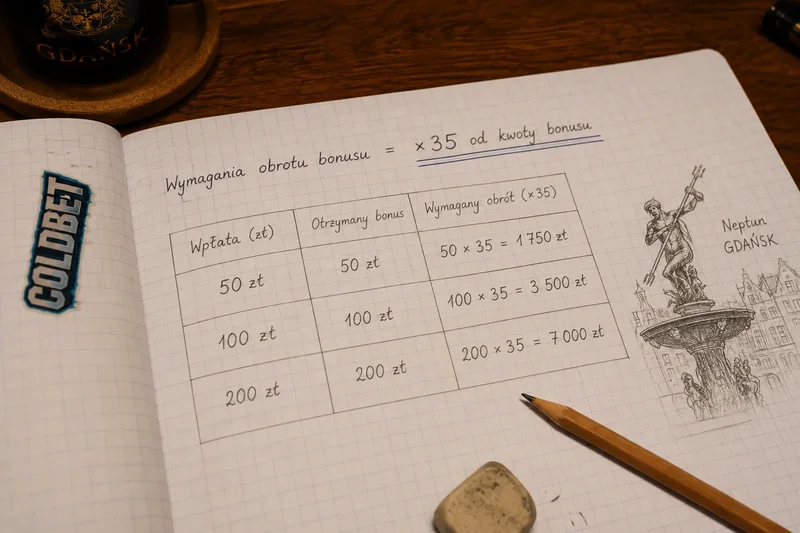 GDAŃSK
COLDBET
Wymagania obrotu bonusu = ×35 od kwoty bonusu
Wpłata (zł) Otrzymany bonus Wymagany obrót (×35)
50 zł 50 zł 50 × 35 = 1 750 zł
100 zł 100 zł 100 × 35 = 3 500 zł
200 zł 200 zł 200 × 35 = 7 000 zł
Neptun
GDAŃSK